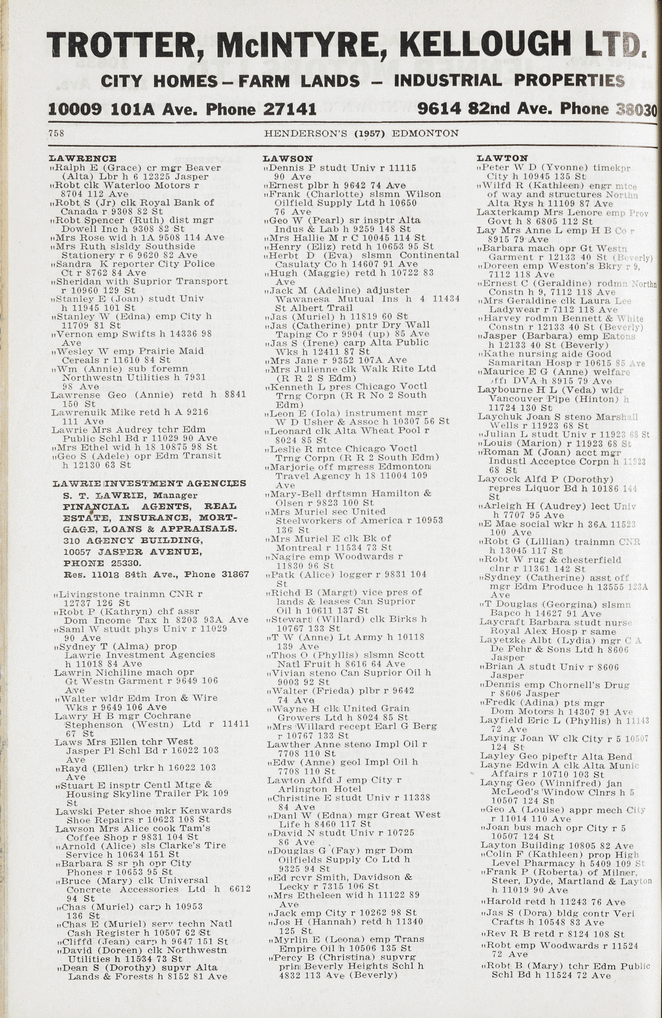 TROTTER, McINTYRE, KELLOUGH LTD.
CITY HOMES – FARM LANDS – INDUSTRIAL PROPERTIES
10009 101A Ave. Phone 27141 9614 82nd Ave. Phone 38030
758 HENDERSON'S (1957) EDMONTON
LAWRENCE
„Ralph E (Grace) cr mgr Beaver
(Alta) Lbr h 6 12325 Jasper
„Robt clk Waterloo Motors r
8704 112 Ave
„Robt S (Jr) clk Royal Bank of
Canada r 9308 82 St
„Robt Spencer (Ruth) dist mgr
Dowell Inc h 9308 82 St
„Mrs Rose wid h 1A 9508 114 Ave
„Mrs Ruth slsldy Southside
Stationery r 6 9620 82 Ave
„Sandra K reporter City Police
Ct r 8762 84 Ave
„Sheridan with Suprior Transport
r 10960 129 St
„Stanley E (Joan) studt Univ
h 11945 101 St
„Stanley W (Edna) emp City h
11709 81 St
„Vernon emp Swifts h 14336 98
Ave
„Wesley W emp Prairie Maid
Cereals r 11610 84 St
„Wm (Annie) sub foremn
Northwestn Utilities h 7931
98 Ave
Lawrense Geo (Annie) retd h 8841
150 St
Lawrenuik Mike retd h A 9216
111 Ave
Lawrie Mrs Audrey tchr Edm
Public Schl Bd r 11029 90 Ave
„Mrs Ethel wid h 18 10875 98 St
„Geo S (Adele) opr Edm Transit
h 12130 63 St
LAWRIE INVESTMENT AGENCIES
S. T. LAWRIE, Manager
FINANCIAL AGENTS, REAL
ESTATE, INSURANCE, MORT-
GAGE, LOANS & APPRAISALS.
310 AGENCY BUILDING,
10057 JASPER AVENUE,
PHONE 25330.
Res. 11018 84th Ave., Phone 31867
„Livingstone trainmn CNR r
12737 126 St
„Robt P (Kathryn) chf assr
Dom Income Tax h 8203 93A Ave
„Saml W studt phys Univ r 11029
90 Ave
„Sydney T (Alma) prop
Lawrie Investment Agencies
h 11018 84 Ave
Lawrin Nichiline mach opr
Gt Westn Garment r 9649 106
Ave
„Walter wldr Edm Iron & Wire
Wks r 9649 106 Ave
Lawry H B mgr Cochrane
Stephenson (Westn) Ltd r 11411
67 St
Laws Mrs Ellen tchr West
Jasper Pl Schl Bd r 16022 103
Ave
„Rayd (Ellen) trkr h 16022 103
Ave
„Stuart E insptr Centl Mtge &
Housing Skyline Trailer Pk 109
St
Lawski Peter shoe mkr Kenwards
Shoe Repairs r 10623 108 St
Lawson Mrs Alice cook Tam's
Coffee Shop r 9831 104 St
„Arnold (Alice) sls Clarke's Tire
Service h 10634 151 St
„Barbara S sr ph opr City
Phones r 10653 95 St
„Bruce (Mary) clk Universal
Concrete Accessories Ltd h 6612
94 St
„Chas (Muriel) carp h 10953
136 St
„Chas E (Muriel) serv techn Natl
Cash Register h 10507 62 St
„Cliffd (Jean) carp h 9647 151 St
„David (Doreen) clk Northwestn
Utilities h 11534 73 St
„Dean S (Dorothy) supvr Alta
Lands & Forests h 8152 81 Ave
LAWSON
„Dennis P studt Univ r 11115
90 Ave
„Ernest plbr h 9642 74 Ave
„Frank (Charlotte) slsmn Wilson
Oilfield Supply Ltd h 10650
76 Ave
„Geo W (Pearl) sr insptr Alta
Indus & Lab h 9259 148 St
„Mrs Hallie M r C 10045 114 St
„Henry (Eliz) retd h 10653 95 St
„Herbt D (Eva) slsmn Continental
Casulaty Co h 14607 91 Ave
„Hugh (Maggie) retd h 10722 83
Ave
„Jack M (Adeline) adjuster
Wawanesa Mutual Ins h 4 11434
St Albert Trail
„Jas (Muriel) h 11819 60 St
„Jas (Catherine) pntr Dry Wall
Taping Co r 9904 (up) 85 Ave
„Jas S (Irene) carp Alta Public
Wks h 12411 87 St
„Mrs Jane r 9352 107A Ave
„Mrs Julienne clk Walk Rite Ltd
(R R 2 S Edm)
„Kenneth L pres Chicago Voctl
Trng Corpn (R R No 2 South
Edm)
„Leon E (Iola) instrument mgr
W D Usher & Assoc h 10307 56 St
„Leonard clk Alta Wheat Pool r
8024 85 St
„Leslie R mtce Chicago Voctl
Trng Corpn (R R 2 South Edm)
„Marjorie off mgress Edmonton
Travel Agency h 18 11004 109
Ave
„Mary-Bell drftsmn Hamilton &
Olsen r 9823 100 St
„Mrs Muriel sec United
Steelworkers of America r 10953
136 St
„Mrs Muriel E clk Bk of
Montreal r 11534 73 St
„Nagire emp Woodwards r
11830 96 St
„Patk (Alice) logger r 9831 104
St
„Richd B (Margt) vice pres of
lands & leases Can Suprior
Oil h 10611 137 St
„Stewart (Willard) clk Birks h
10767 133 St
„T W (Anne) Lt Army h 10118
139 Ave
„Thos O (Phyllis) slsmn Scott
Natl Fruit h 8616 64 Ave
„Vivian steno Can Suprior Oil h
9003 92 St
„Walter (Frieda) plbr r 9642
74 Ave
„Wayne H clk United Grain
Growers Ltd h 8024 85 St
„Mrs Willard recept Earl G Berg
r 10767 133 St
Lawther Anne steno Impl Oil r
7708 110 St
„Edw (Anne) geol Impl Oil h
7708 110 St
Lawton Alfd J emp City r
Arlington Hotel
„Christine E studt Univ r 11338
84 Ave
„Danl W (Edna) mgr Great West
Life h 8460 117 St
„David N studt Univ r 10725
86 Ave
„Douglas G (Fay) mgr Dom
Oilfields Supply Co Ltd h
9325 94 St
„Ed rcvr Smith, Davidson &
Lecky r 7315 106 St
„Mrs Etheleen wid h 11122 89
Ave
„Jack emp City r 10262 98 St
„Jos H (Hannah) retd h 11340
125 St
„Myrlin E (Leona) emp Trans
Empire Oil h 10506 135 St
„Percy B (Christina) supvrg
prin Beverly Heights Schl h
4832 113 Ave (Beverly)
LAWTON
„Peter W D (Yvonne) timekpr
City h 10945 135 St
„Wilfd R (Kathleen) engr mtce
of way and structures Northn
Alta Rys h 11109 87 Ave
Laxterkamp Mrs Lenore emp Prov
Govt h 8 6805 112 St
Lay Mrs Anne L emp H B Co r
8915 79 Ave
„Barbara mach opr Gt Westn
Garment r 12133 40 St (Beverly)
„Doreen emp Weston's Bkry r 9,
7112 118 Ave
„Ernest C (Geraldine) rodmn Northn
Constn h 9, 7112 118 Ave
„Mrs Geraldine clk Laura Lee
Ladywear r 7112 118 Ave
„Harvey rodmn Bennett & White
Constn r 12133 40 St (Beverly)
„Jasper (Barbara) emp Eatons
h 12133 40 St (Beverly)
„Kathe nursing aide Good
Samaritan Hosp r 10615 85 Ave
„Maurice E G (Anne) welfare
off DVA h 8915 79 Ave
Laybourne H L (Veda) wldr
Vancouver Pipe (Hinton) h
11724 130 St
Laychuk Joan S steno Marshall
Wells r 11923 68 St
„Julian L studt Univ r 11923 68 St
„Louis (Marion) r 11923 68 St
„Roman M (Joan) acct mgr
Industl Acceptce Corpn h 11923
68 St
Laycock Alfd P (Dorothy)
repres Liquor Bd h 10186 144
St
„Arleigh H (Audrey) lect Univ
h 7707 95 Ave
„E Mae social wkr h 36A 11523
100 Ave
„Robt G (Lillian) trainmn CNR
h 13045 117 St
„Robt W rug & chesterfield
clnr r 11361 142 St
„Sydney (Catherine) asst off
mgr Edm Produce h 13555 123A
Ave
„T Douglas (Georgina) slsmn
Bapco h 14627 91 Ave
Laycraft Barbara studt nurse
Royal Alex Hosp r same
Layetzke Albt (Lydia) mgr C A
De Fehr & Sons Ltd h 8606
Jasper
„Brian A studt Univ r 8606
Jasper
„Dennis emp Chornell's Drug
r 8606 Jasper
„Fredk (Adina) pts mgr
Dom Motors h 14307 91 Ave
Layfield Eric L (Phyllis) h 11143
72 Ave
Laying Joan W clk City r 5 10507
124 St
Layley Geo pipeftr Alta Bend
Layne Edwin A clk Alta Munic
Affairs r 10710 103 St
Layng Geo (Winnifred) jan
McLeod's Window Clnrs h 5
10507 124 St
„Geo A (Louise) appr mech City
r 11014 110 Ave
„Joan bus mach opr City r 5
10507 124 St
Layton Building 10805 82 Ave
„Colin F (Kathleen) prop High
Level Pharmacy h 5409 109 St
„Frank P (Roberta) of Milner,
Steer, Dyde, Martland & Layton
h 11019 90 Ave
„Harold retd h 11243 76 Ave
„Jas S (Dora) bldg contr Veri
Crafts h 10548 83 Ave
„Rev R B retd r 8124 108 St
„Robt emp Woodwards r 11524
72 Ave
„Robt B (Mary) tchr Edm Public
Schl Bd h 11524 72 Ave